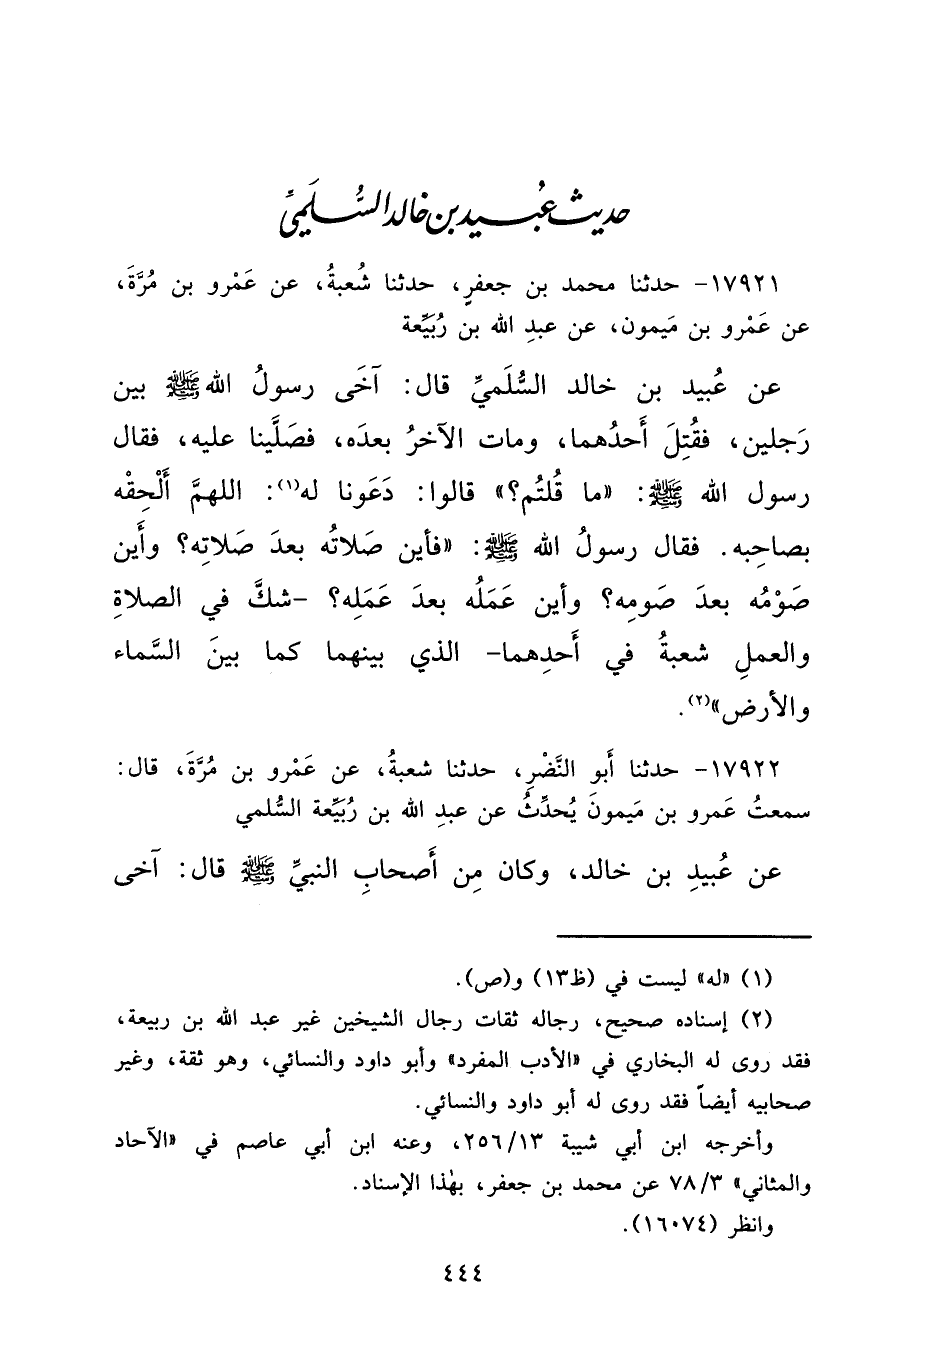 حديث عُبيد بن خالد السُّلَمِيِّ
١٧٩٢١- حدثنا محمد بن جعفرٍ، حدثنا شُعبةُ، عن عَمْرو بن مُرَّةَ،
عن عَمْرو بن مَيمون، عن عبدِ الله بن رُبَيِّعة
عن عُبيد بن خالد السُّلَميِّ قال: آخَى رسولُ الله ﷺ بين
رَجلين، فقُتِلَ أَحدُهما، ومات الآخرُ بعدَه، فصَلَّينا عليه، فقال
رسول الله ﷺ: «ما قُلتُم؟» قالوا: دَعَونا له(١): اللهمَّ أَلْحِقْه
بصاحِبه. فقال رسولُ الله ﷺ: «فأين صَلاتُه بعدَ صَلاتِه؟ وأَين
صَوْمُه بعدَ صَومِه؟ وأين عَمَلُه بعدَ عَمَلِه؟ -شكَّ في الصلاةِ
والعملِ شعبةُ في أَحدِهما- الذي بينهما كما بينَ السَّماء
والأرض»(٢).
١٧٩٢٢- حدثنا أَبو النَّضْرِ، حدثنا شعبةُ، عن عَمْرو بن مُرَّةَ، قال:
سمعتُ عَمرو بن مَيمونَ يُحدِّثُ عن عبدِ الله بن رُبَيِّعة السُّلمي
عن عُبيدِ بن خالد، وكان مِن أَصحابِ النبيِّ ﷺ قال: آخى
(١) «له» ليست في (ظ١٣) و(ص).
(٢) إسناده صحيح، رجاله ثقات رجال الشيخين غير عبد الله بن ربيعة،
فقد روى له البخاري في «الأدب المفرد» وأبو داود والنسائي، وهو ثقة، وغير
صحابيه أيضاً فقد روى له أبو داود والنسائي.
وأخرجه ابن أبي شيبة ٢٥٦/١٣، وعنه ابن أبي عاصم في «الآحاد
والمثاني» ٧٨/٣ عن محمد بن جعفر، بهٰذا الإسناد.
وانظر (١٦٠٧٤).
٤٤٤